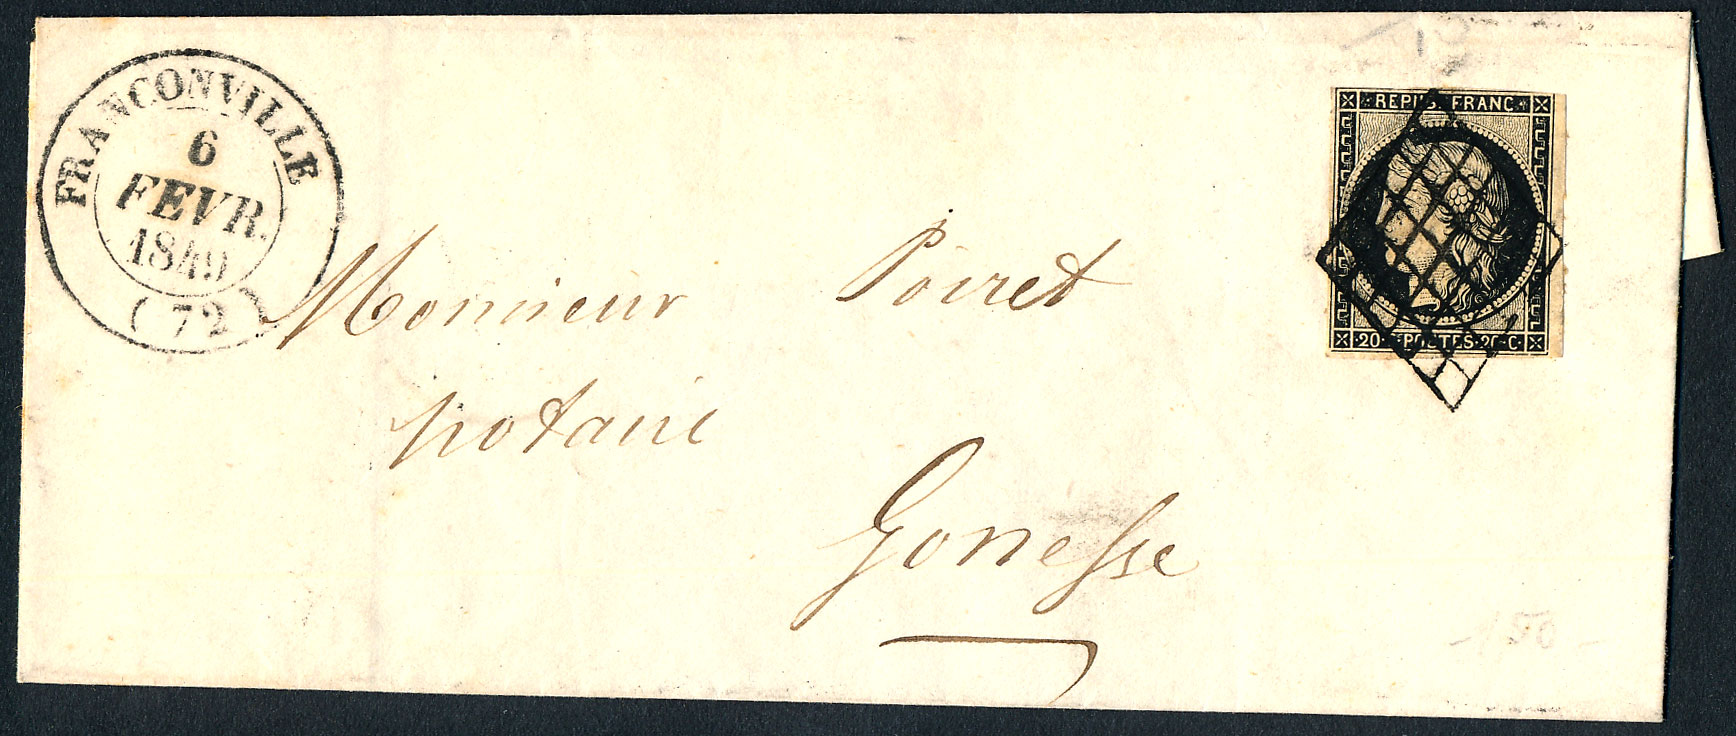 FRANCONVILLE
6
FEVR.
1849
(72)
REPUB. FRANC.
20·C·POSTES·20·C·
Monsieur Poiret
notaire
Gonesse